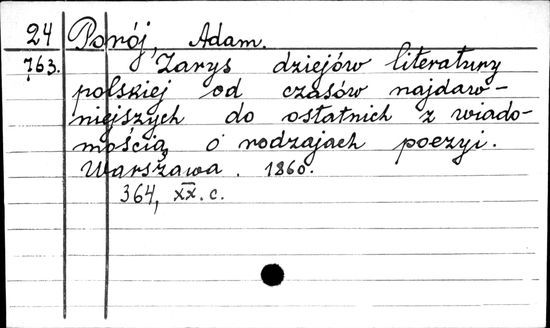 24 Porój, Adam.
763. Zarys dziejów literatury
polskiej od czasów najdaw-
niejszych do ostatnich z wiado-
mością o rodzajach poezyi.
Warszawa. 1860.
364, XX. c.